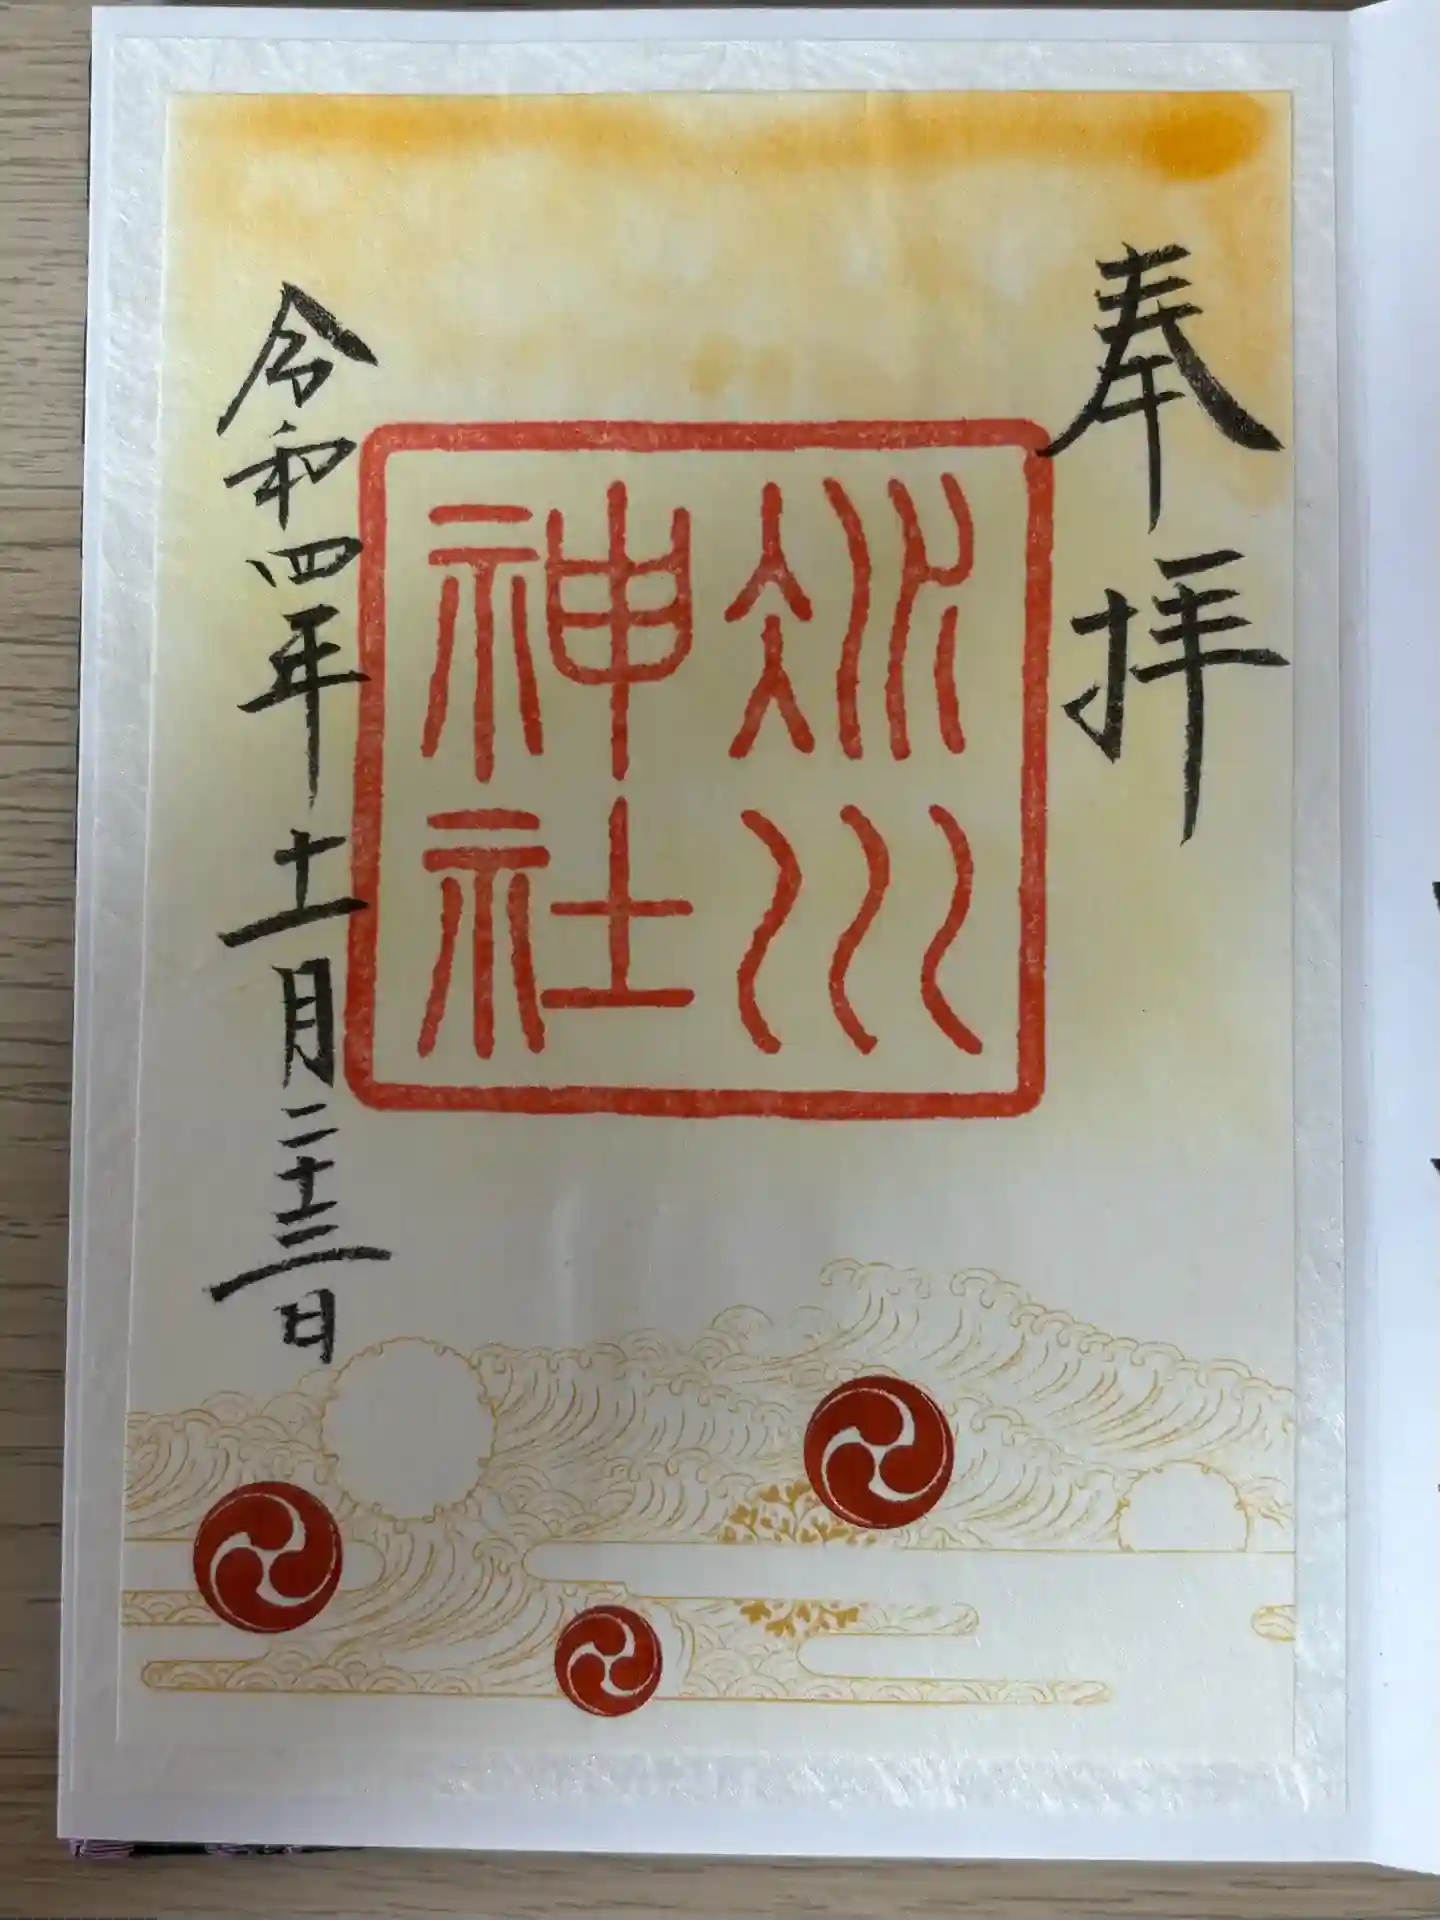 奉拝
冰川
神社
令和四年十一月二十三日